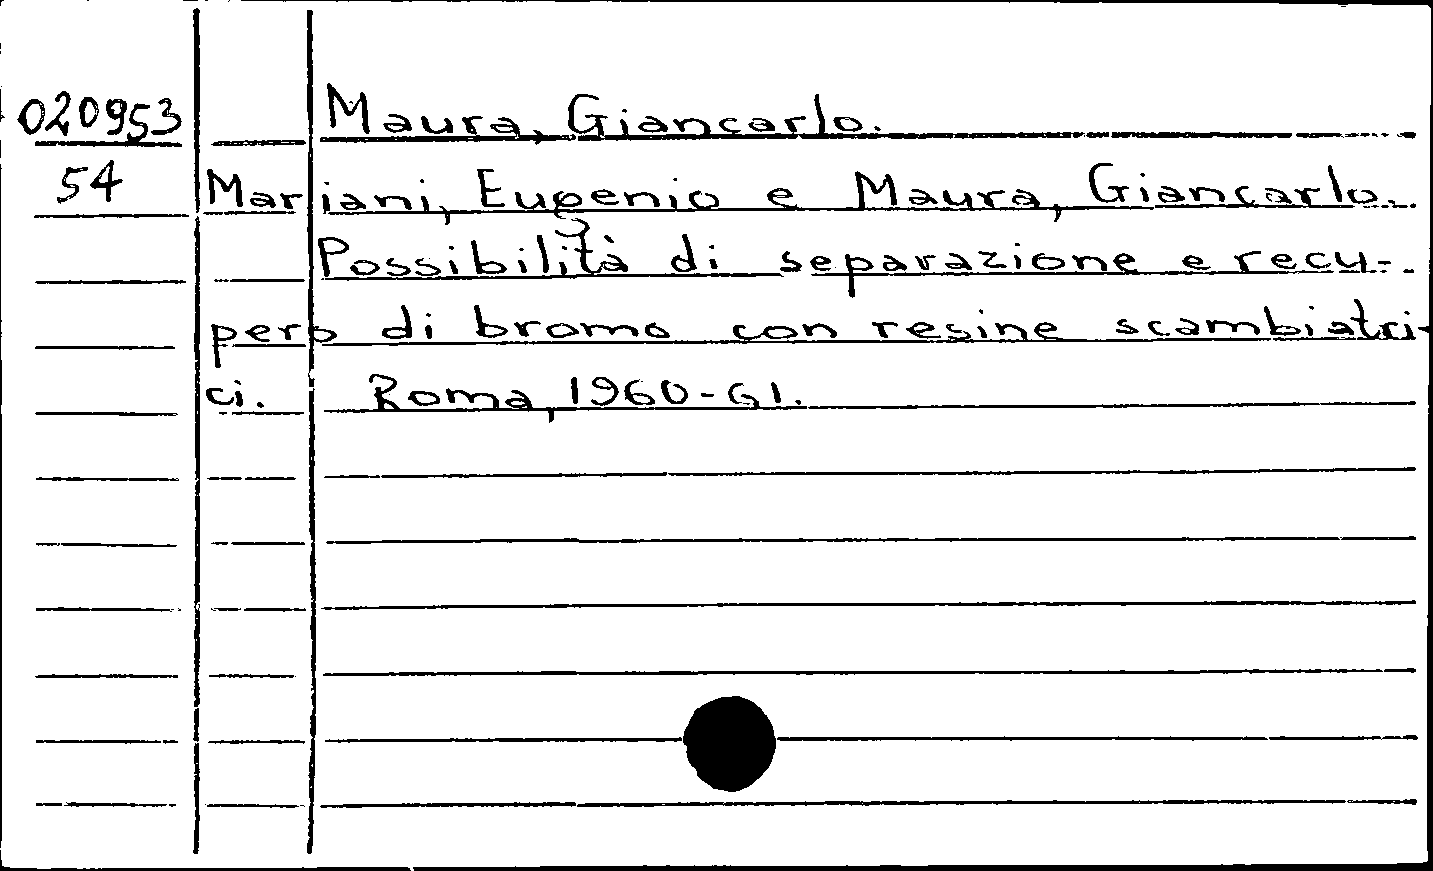 020953 Maura, Giancarlo.
54 Mariani, Eugenio e Maura, Giancarlo.
Possibilità di separazione e recu-
pero di bromo con resine scambiatri-
ci. Roma, 1960-61.